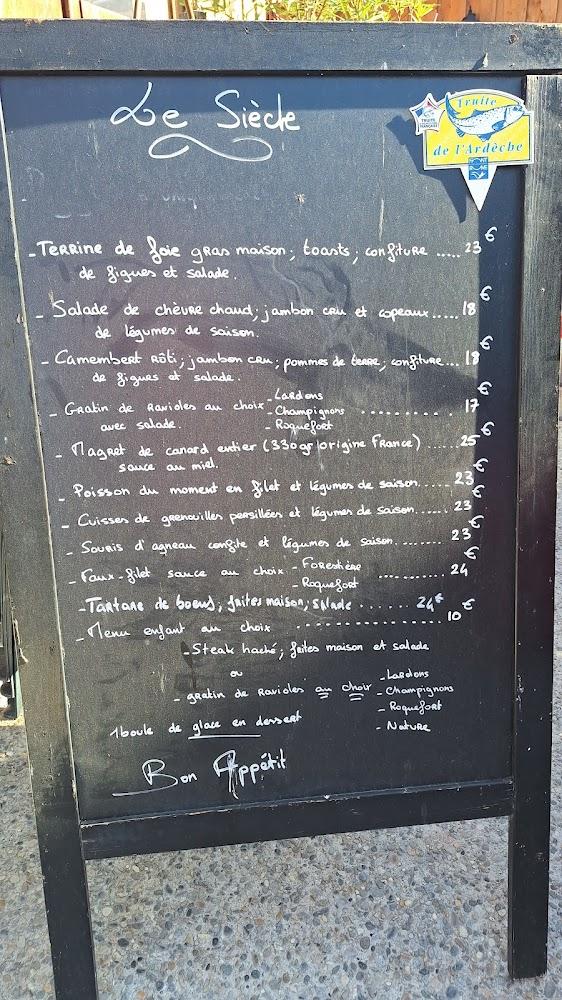 Le Siècle
TRUITE
Truite
de l'Ardèche
- Terrine de foie gras maison; toasts; confiture ..... 23 €
de figues et salade.
- Salade de chèvre chaud; jambon cru et copeaux ..... 18 €
de légumes de saison.
- Camembert rôti; jambon cru; pommes de terre; confiture... 18 €
de figues et salade.
- Gratin de Ravioles au choix - Lardons
- Champignons .............. 17 €
avec salade. - Roquefort
- Magret de canard entier (330gr origine France) ..... 25 €
sauce au miel.
- Poisson du moment en filet et légumes de saison ...... 23 €
- Cuisses de grenouilles persillées et légumes de saison ..... 23 €
- Souris d'agneau confite et légumes de saison ........ 23 €
- Faux-filet sauce au choix - Forestière
- Roquefort ........... 24 €
- Tartare de boeuf; frites maison; salade ...... 24 €
- Menu enfant au choix ...................... 10 €
- Steak haché; frites maison et salade
ou
- gratin de Ravioles au choix - Lardons
- Champignons
- Roquefort
- Nature
1 boule de glace en dessert
Bon Appétit